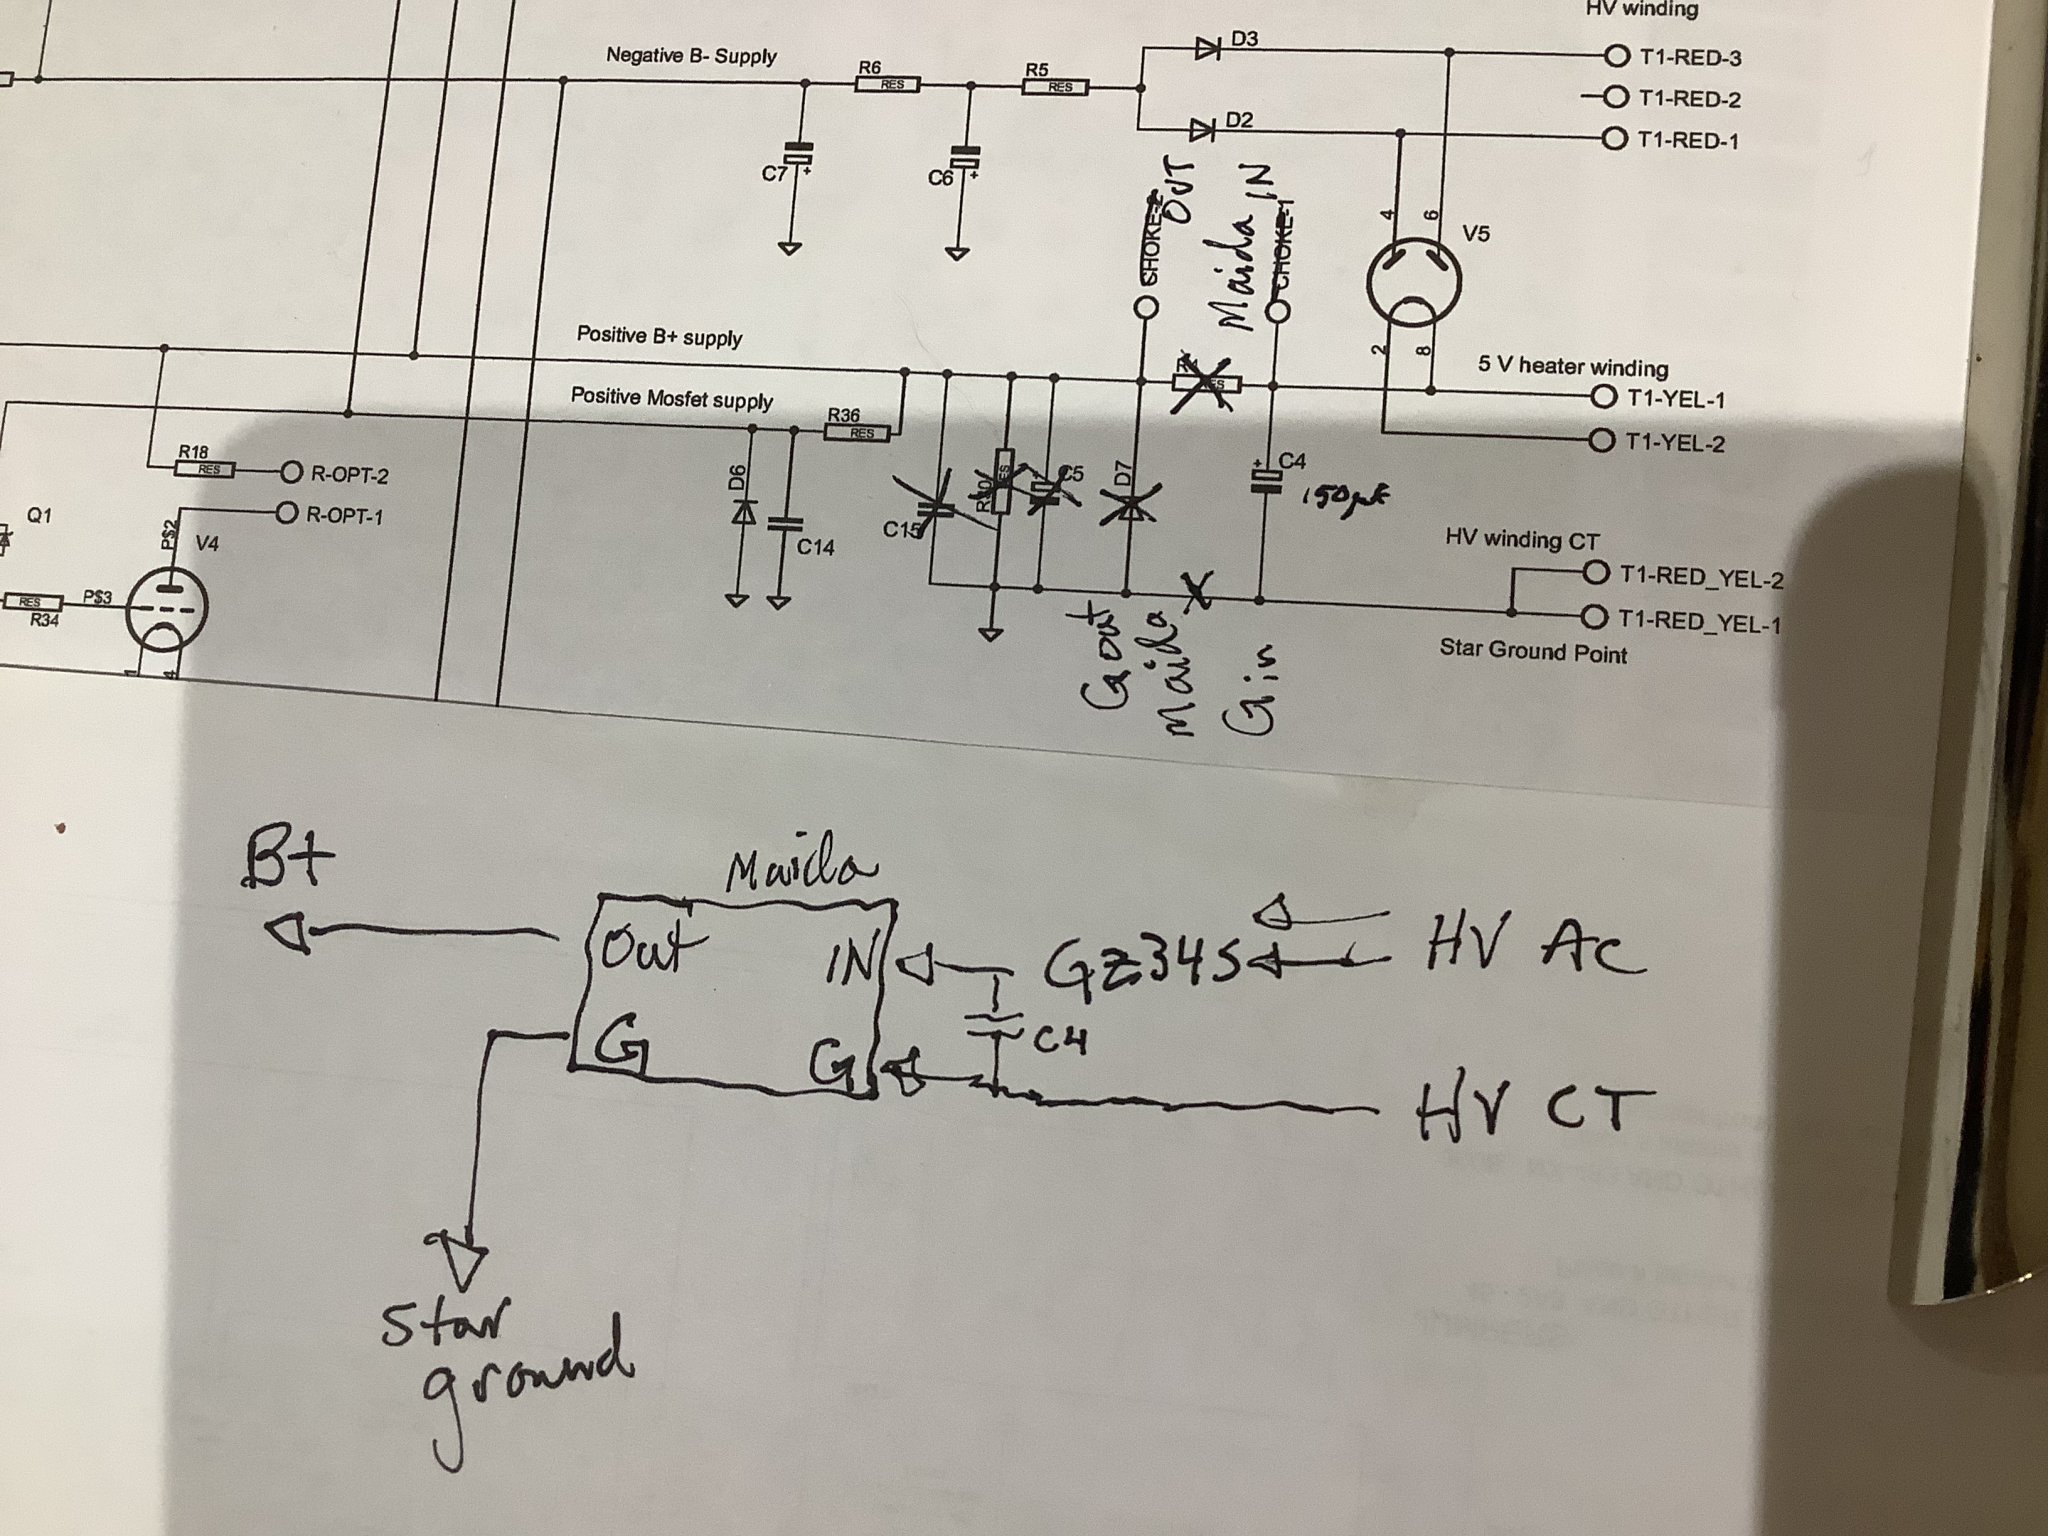 HV winding
D3
T1-RED-3
Negative B- Supply
R6
RES
R5
RES
T1-RED-2
D2
T1-RED-1
C7
+
C6
+
CHOKE-2
OUT
Maida IN
CHOKE-1
4
6
V5
2
8
Positive B+ supply
RES
5 V heater winding
T1-YEL-1
Positive Mosfet supply
R36
RES
T1-YEL-2
R18
RES
R-OPT-2
D6
C5
D7
+
C4
150µF
Q1
R-OPT-1
P$2
V4
C14
C15
HV winding CT
T1-RED_YEL-2
RES
P$3
R34
T1-RED_YEL-1
Star Ground Point
1
4
Gout
Maida
Gin
B+
Maida
Out
IN
GZ34S
HV AC
G
G
C4
HV CT
Star
ground